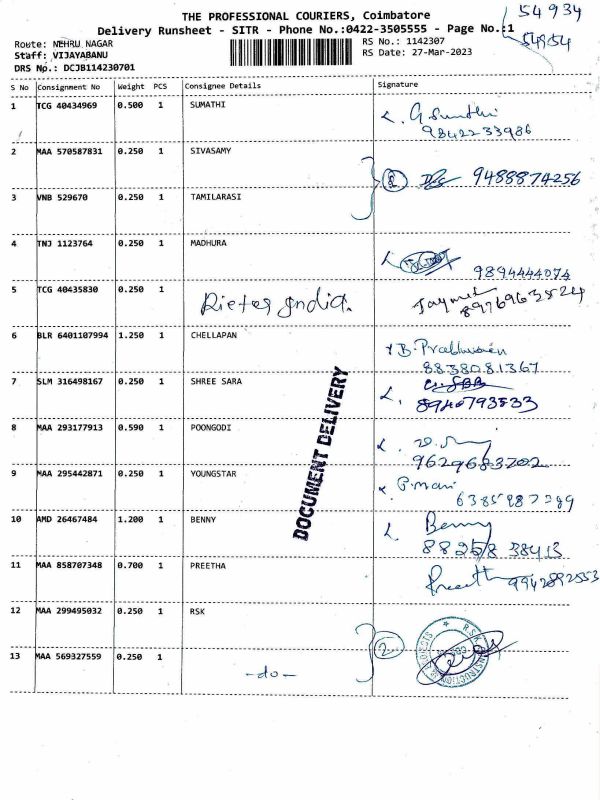 THE PROFESSIONAL COURIERS, Coimbatore
54934
Delivery Runsheet - SITR - Phone No.:0422-3505555 - Page No.:1
54954
Route: NEHRU NAGAR
RS No.: 1142307
Staff: VIJAYABANU
RS Date: 27-Mar-2023
DRS No.: DCJB114230701
S No Consignment No Weight PCS Consignee Details Signature
1 TCG 40434969 0.500 1 SUMATHI
9842233986
2 MAA 570587831 0.250 1 SIVASAMY
2 9488874256
3 VNB 529670 0.250 1 TAMILARASI
4 TNJ 1123764 0.250 1 MADHURA
9894444074
5 TCG 40435830 0.250 1 Rieter India.
6 BLR 6401107994 1.250 1 CHELLAPAN
8838081367
7 SLM 316498167 0.250 1 SHREE SARA
8940793833
DOCUMENT DELIVERY
8 MAA 293177913 0.590 1 POONGODI
9629683202
9 MAA 295442871 0.250 1 YOUNGSTAR
P. Mari
10 AMD 26467484 1.200 1 BENNY
Benny
88258 38413
11 MAA 858707348 0.700 1 PREETHA
Preetha 9942892553
12 MAA 299495032 0.250 1 RSK
2
13 MAA 569327559 0.250 1
-do-